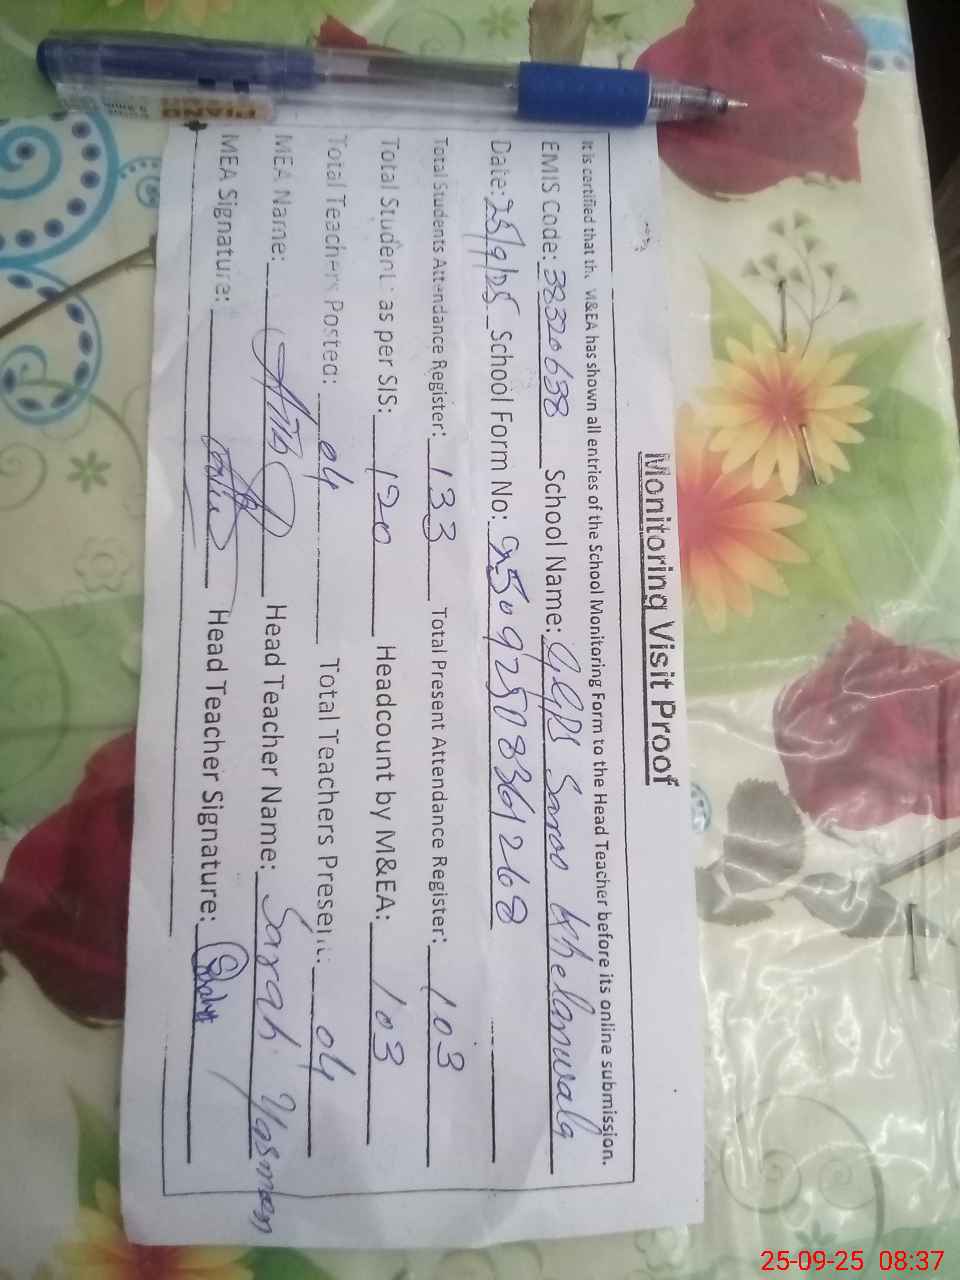 Monitoring Visit Proof
It is certified that the M&EA has shown all entries of the School Monitoring Form to the Head Teacher before its online submission.
EMIS Code: 38320638 School Name: GGPS Saroo Khelanwala
Date: 25/9/25 School Form No: 25092508361268
Total Students Attendance Register: 133 Total Present Attendance Register: 103
Total Student as per SIS: 120 Headcount by M&EA: 103
Total Teachers Posted: 04 Total Teachers Present: 04
MEA Name: Head Teacher Name: Sarah Yasmeen
MEA Signature: Head Teacher Signature:
PIANO
25-09-25 08:37